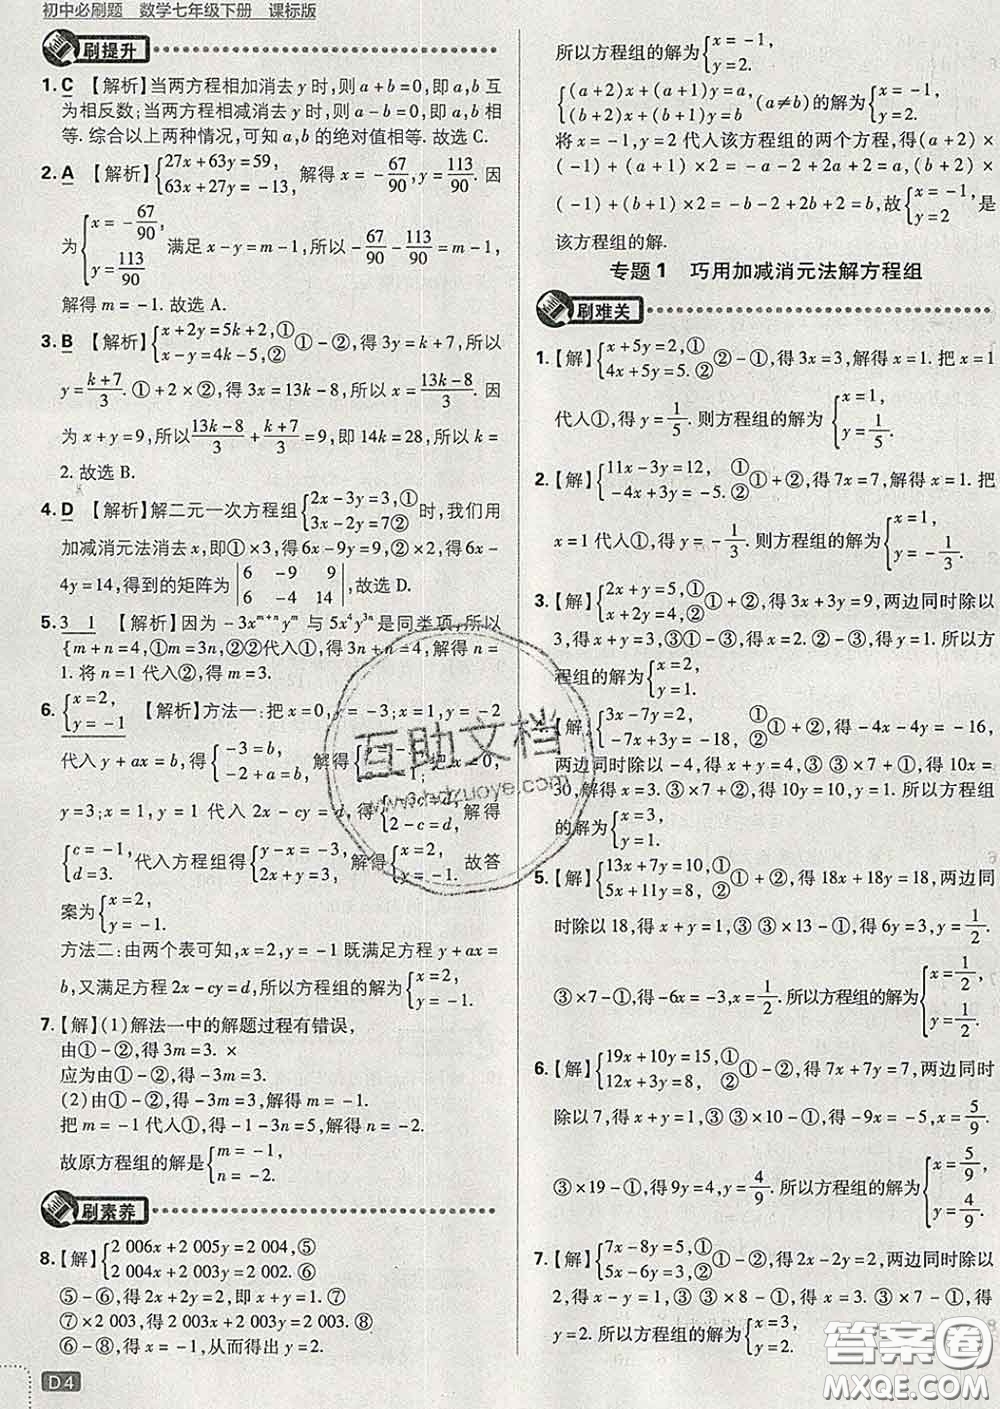 初中必刷题 数学七年级下册 课标版
刷提升
1. C 【解析】当两方程相加消去 y 时,则 a+b=0,即 a,b 互
为相反数;当两方程相减消去 y 时,则 a-b=0,即 a,b 相
等. 综合以上两种情况,可知 a,b 的绝对值相等. 故选 C.
2. A 【解析】{27x+63y=59, 63x+27y=-13, 解得 x=-67/90, y=113/90. 因
为{x=-67/90, y=113/90 满足 x-y=m-1,所以-67/90-113/90=m-1,
解得 m=-1. 故选 A.
3. B 【解析】{x+2y=5k+2,① x-y=4k-5,② ①-②,得 3y=k+7,所以
y=(k+7)/3. ①+2×②,得 3x=13k-8,所以 x=(13k-8)/3. 因
为 x+y=9,所以(13k-8)/3+(k+7)/3=9,即 14k=28,所以 k=
2. 故选 B.
4. D 【解析】解二元一次方程组{2x-3y=3,① 3x-2y=7② 时,我们用
加减消元法消去 x,即①×3,得 6x-9y=9,②×2,得 6x-
4y=14,得到的矩阵为|6 -9 9; 6 -4 14|,故选 D.
5. 3 1 【解析】因为-3x^{m+n}y^m 与 5x^4y^{3n}是同类项,所以
{m+n=4,①m=3n,②②代入①,得 3n+n=4,解得 n=
1. 将 n=1 代入②,得 m=3.
6. {x=2, y=-1 【解析】方法一:把 x=0,y=-3;x=1,y=-2
代入 y+ax=b,得{-3=b, -2+a=b, 解得
y=3;x=1,y=2 代入 2x-cy=d,得 2-c=d, 解得
{c=-1, d=3. 代入方程组得{y-x=-3, 2x+y=3, 解得{x=2, y=-1. 故答
案为{x=2, y=-1.
方法二:由两个表可知,x=2,y=-1 既满足方程 y+ax=
b,又满足方程 2x-cy=d,所以方程组的解为{x=2, y=-1.
7.【解】(1)解法一中的解题过程有错误,
由①-②,得 3m=3. ×
应为由①-②,得-3m=3.
(2)由①-②,得-3m=3,解得 m=-1.
把 m=-1 代入①,得-1-3n=5,解得 n=-2.
故原方程组的解是{m=-1, n=-2.
刷素养
8.【解】{2 006x+2 005y=2 004,⑤ 2 004x+2 003y=2 002. ⑥
⑤-⑥,得 2x+2y=2,即 x+y=1. ⑦
⑦×2 003,得 2 003x+2 003y=2 003. ⑧
⑥-⑧,得 x=-1,从而得出 y=2.
D4
所以方程组的解为{x=-1, y=2.
{(a+2)x+(a+1)y=a, (b+2)x+(b+1)y=b,(a≠b)的解为{x=-1, y=2.
将 x=-1,y=2 代入该方程组的两个方程,得(a+2)×
(-1)+(a+1)×2=-a-2+2a+2=a,(b+2)×
(-1)+(b+1)×2=-b-2+2b+2=b,故{x=-1, y=2 是
该方程组的解.
专题 1 巧用加减消元法解方程组
刷难关
1.【解】{x+5y=2,① 4x+5y=5. ② ②-①,得 3x=3,解得 x=1. 把 x=1
代入①,得 y=1/5. 则方程组的解为{x=1, y=1/5.
2.【解】{11x-3y=12, ① -4x+3y=-5. ② ①+②,得 7x=7,解得 x=1. 把
x=1 代入①,得 y=-1/3. 则方程组的解为{x=1, y=-1/3.
3.【解】{2x+y=5,① x+2y=4,②①+②,得 3x+3y=9,两边同时除以
3,得 x+y=3,③①-③,得 x=2. ②-③,得 y=1. 所以方
程组的解为{x=2, y=1.
【解】{3x-7y=2, ① -7x+3y=-18, ②①+②,得-4x-4y=-16,
两边同时除以-4,得 x+y=4. ③ ③×7+①,得 10x=
30,解得 x=3. ③×7+②,得 10y=10,y=1. 所以方程组
的解为{x=3, y=1.
5.【解】{13x+7y=10,① 5x+11y=8,②①+②,得 18x+18y=18,两边同
时除以 18,得 x+y=1,③ ③×13-①,得 6y=3,y=1/2.
③×7-①,得-6x=-3,x=1/2. 所以方程组的解为{x=1/2, y=1/2.
6.【解】{19x+10y=15,① 12x+3y=-8,②①-②,得 7x+7y=7,两边同时
除以 7,得 x+y=1,③ ③×10-①,得-9x=-5,x=5/9.
③×19-①,得 9y=4,y=4/9. 所以方程组的解为{x=5/9, y=4/9.
7.【解】{7x-8y=5,① 5x-6y=3,②①-②,得 2x-2y=2,两边同时除以
2,得 x-y=1,③ ③×8-①,得 x=3. ③×7-①,得
y=2. 所以方程组的解为{x=3, y=2.
互助文档
www.hdzuoye.com
答案圈
MXQE.COM